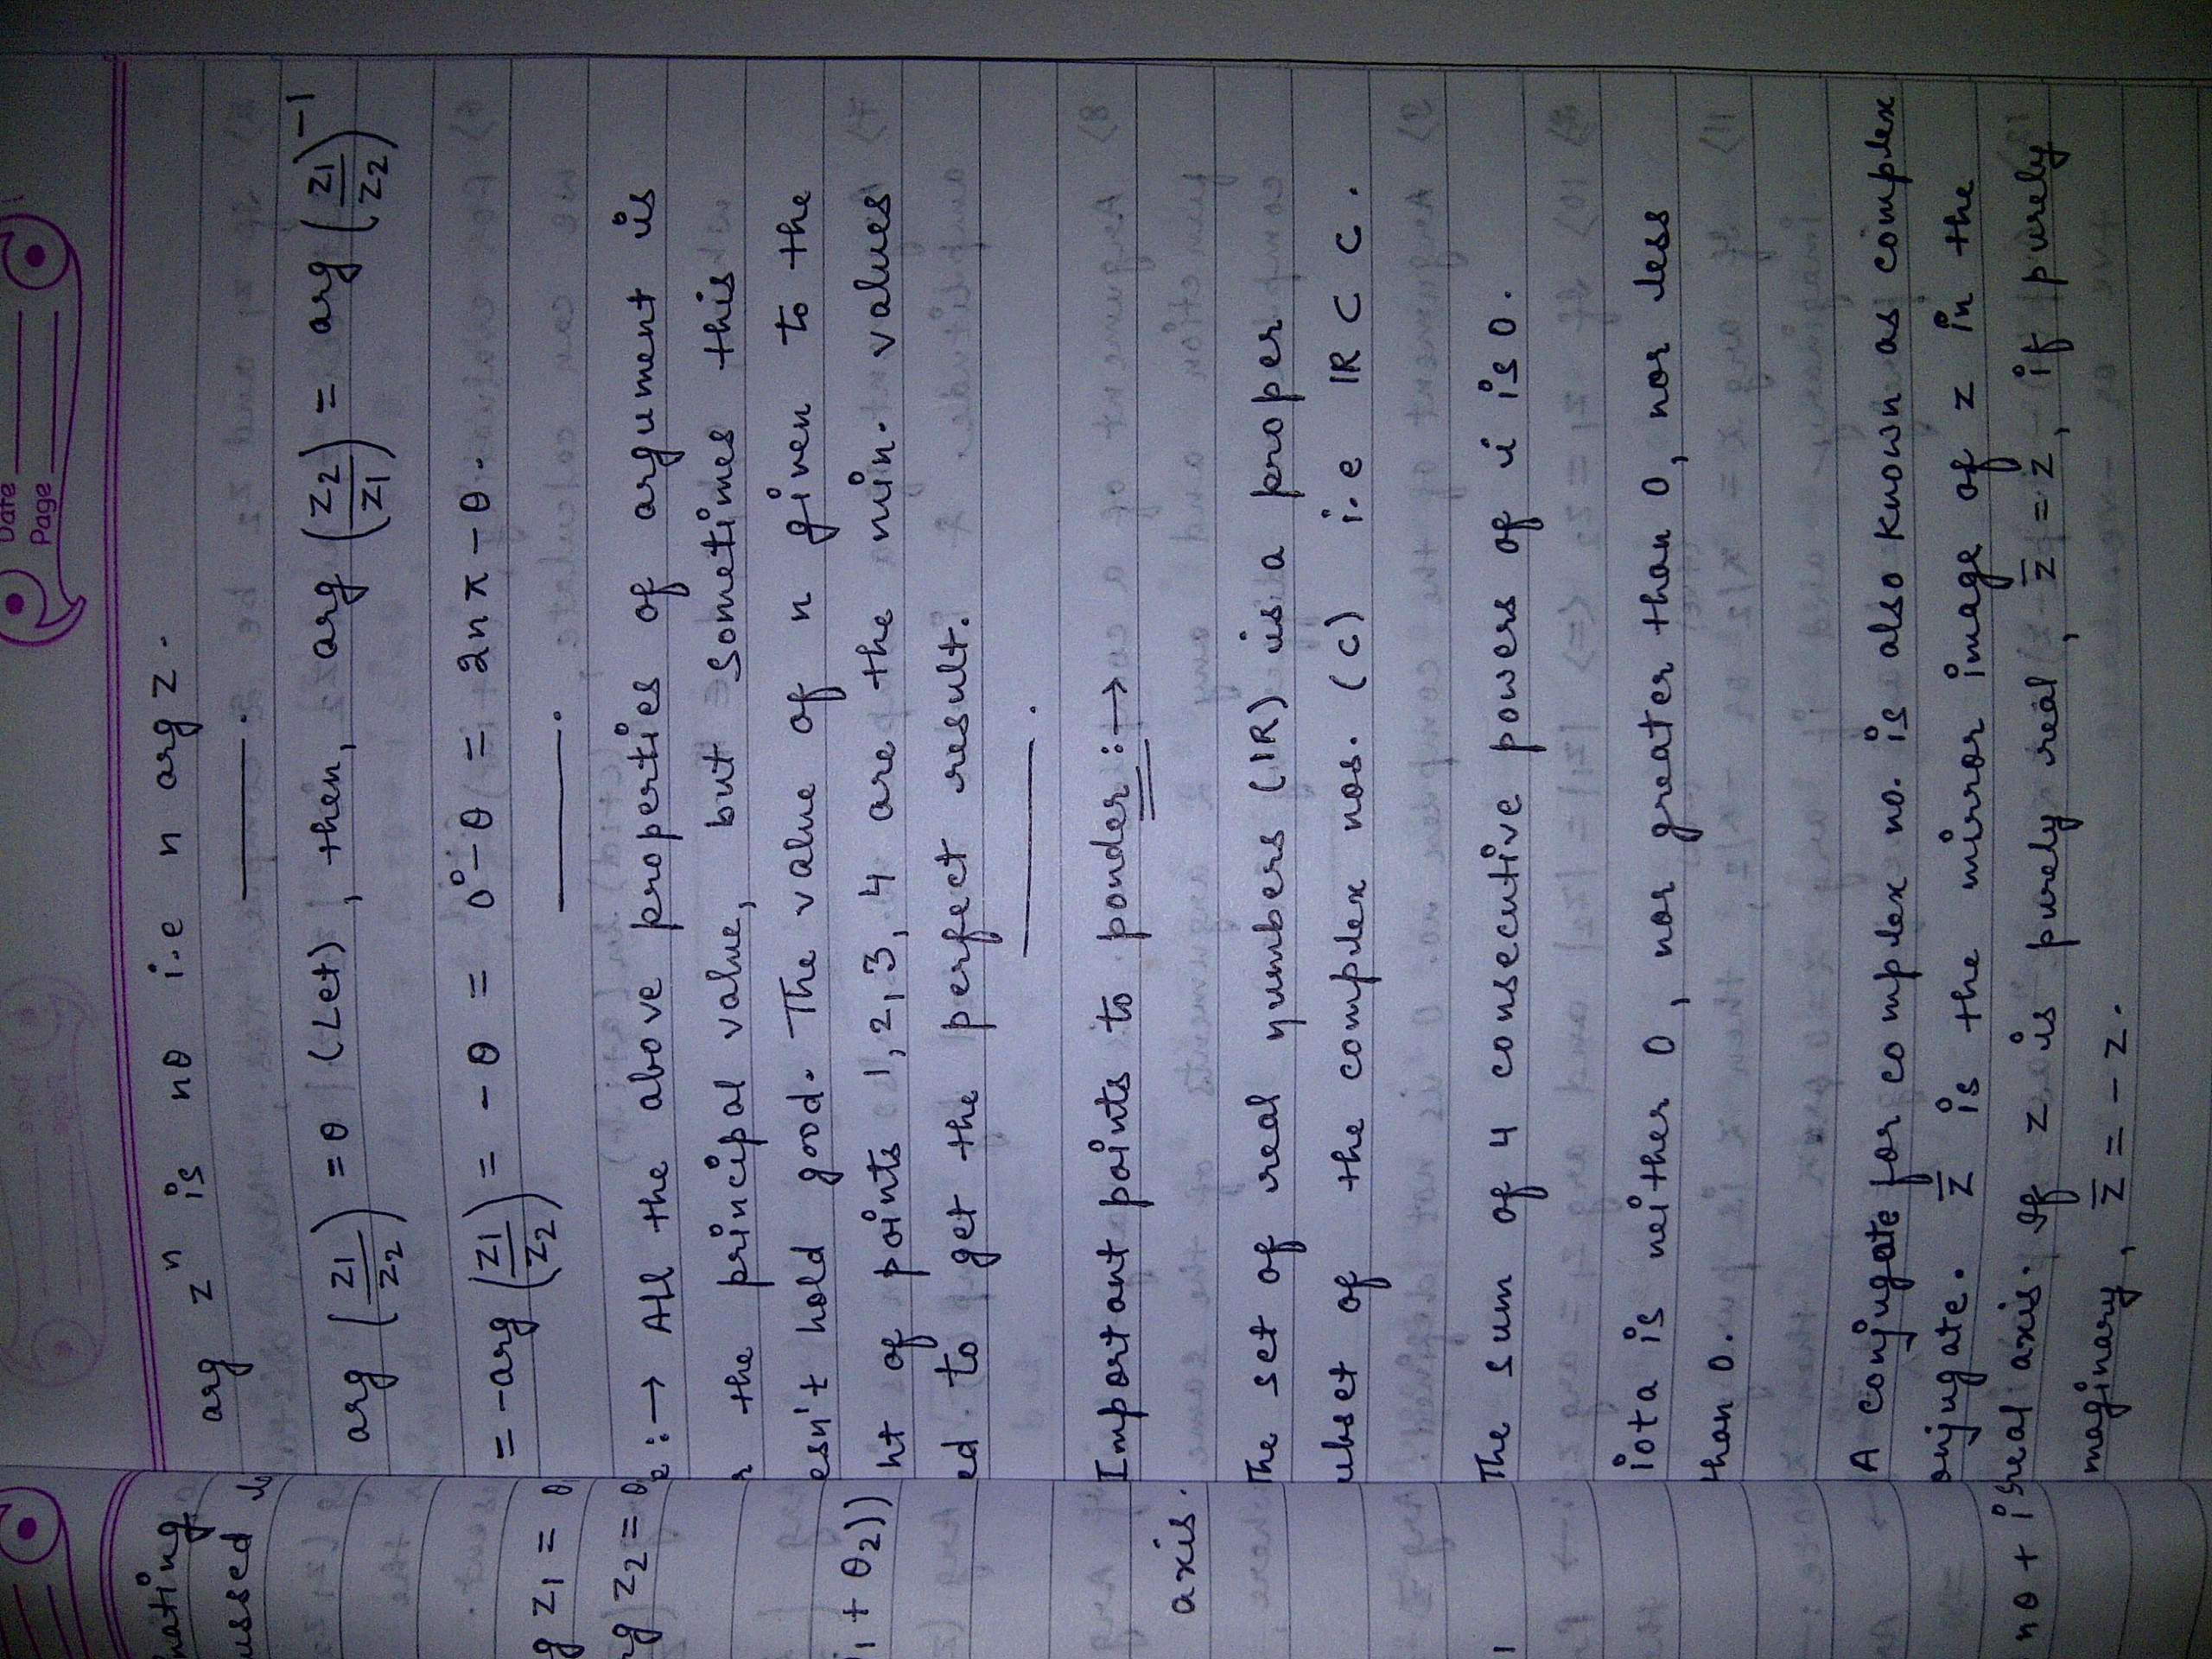 Date
Page
arg zⁿ is nθ i.e n arg z.
arg (z1/z2) = θ (Let), then, arg (z2/z1) = arg (z1/z2)⁻¹
= -arg (z1/z2) = -θ = 0°-θ = 2nπ-θ.
e :→ All the above properties of argument is
the principal value, but sometimes this
esn't hold good. The value of n given to the
nt of points 1, 2, 3, 4 are the min. values
ed to get the perfect result.
Important points to ponder :→
The set of real numbers (IR) is a proper
ubset of the complex nos. (C) i.e IR ⊂ C.
The sum of 4 consecutive powers of i is 0.
iota is neither 0, nor greater than 0, nor less
than 0.
A conjugate for complex no. is also known as complex
onjugate. z̅ is the mirror image of z in the
real axis. If z is purely real, z̅ = z, if purely
maginary, z̅ = -z.
nating
ussed
g z1 = θ
rg z2 = θ
1 + θ2))
axis.
1
nθ + i